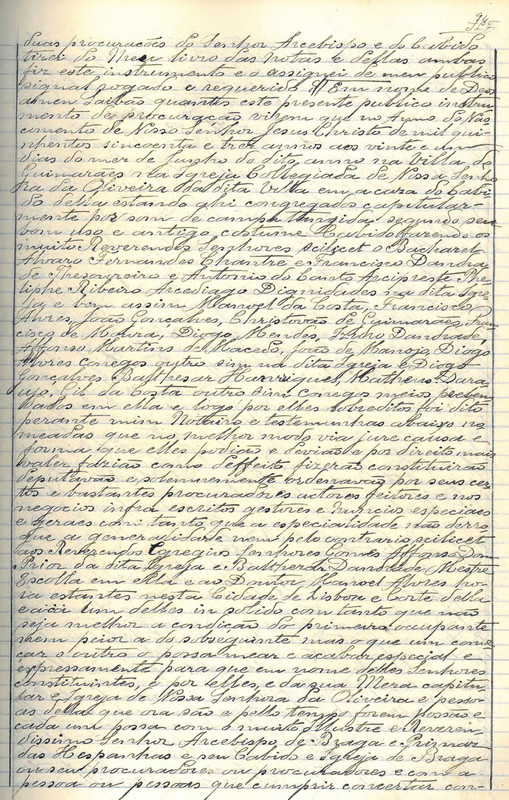 duas procuracões do Senhor Arcebispo e do Cabido
tirei do Meu livro das Notas e dellas ambas
fiz este instrumento e o assignei de meu publico
signal rogado e requerido // Em nome de Deos
amen Saibão quantos este presente publico instru-
mento de procuração virem que no Anno do Nas-
cimento de Nosso Senhor Jesus Christo de mil qui-
nhentos sincoenta e tres annos aos vinte e um
dias do mez de Junho do dito anno na Villa de
Guimarães na Igreja Collegiada de Nossa Senho
ra da Oliveira da dita Villa em a caza do Cabi
do della estando ahi congregados capitular-
mente por som de campa tangida segundo seu
bom uso e antigo costume Cabido fazendo os
muito Reverendos Senhores scilicet o Bacharel
Alvaro Fernandes Chantre e Francisco Dandra
de Thesoureiro e Antonio do Canto Arcipreste Phe
liphe Ribeiro Arcediago Dignidades na dita Igre
ja e bem assim Manoel da Costa, Francisco
Anres, João Goncalves, Christovão de Guimarães, Fran
cisco de Moura, Diogo Mendes, Pedro Dandrade,
Affonso Martins de Macedo, João de Diogo
Anres conegos outro sim na dita Igreja e Diogo
Gonçalves Balthesar Hanriques, Matheus Darau
jo, da Costa outro sim conegos meio preben
dados em ella e logo por elles sobreditos foi dito
perante mim Notairo e testemunhas abaixo no
meadas que no melhor modo via jure causa e
forma que elles podião e devião e por direito mais
valer fazião como deffeito fizerão constituirão
deputavão e solemnemente ordenavão por seus cer
tos e bastantes procuradores autores feitores e nos
negocios infra escritos gestores e nuncios especiaes
e geraes com tanto que a especialidade não derro
gue a generalidade nem pelo contrario scilicet
aos Reverendos Egregios Senhores Gomes Affonso Dom
Prior da dita Igreja e Balthezar Dandrade Mestre
Escolla em ella e ao Doutor Manoel Anres po
ra estantes nesta Cidade de Lisboa e Corte della
e a cada um delles in solido com tanto que não
seja melhor a condição do primeiro occupante
nem peior a do subsequente mas o que um come
çar o outro o possa mear e acabar especial e
expressamente para que em nome delles Senhores
constituintes, e por elles, e da sua Meza capitu
lar e Igreja de Nossa Senhora da Oliveira e pesso
as della que ora são e pello tempo forem possão e
cada um possa com o muito Illustre e Reveren
dissimo Senhor Arcebispo de Braga e Primaz
das Hespanhas e seu Cabido e Igreja de Braga
ou seu procuradores ou procuradores e com a
pessoa ou pessoas que cumprir concertar con-